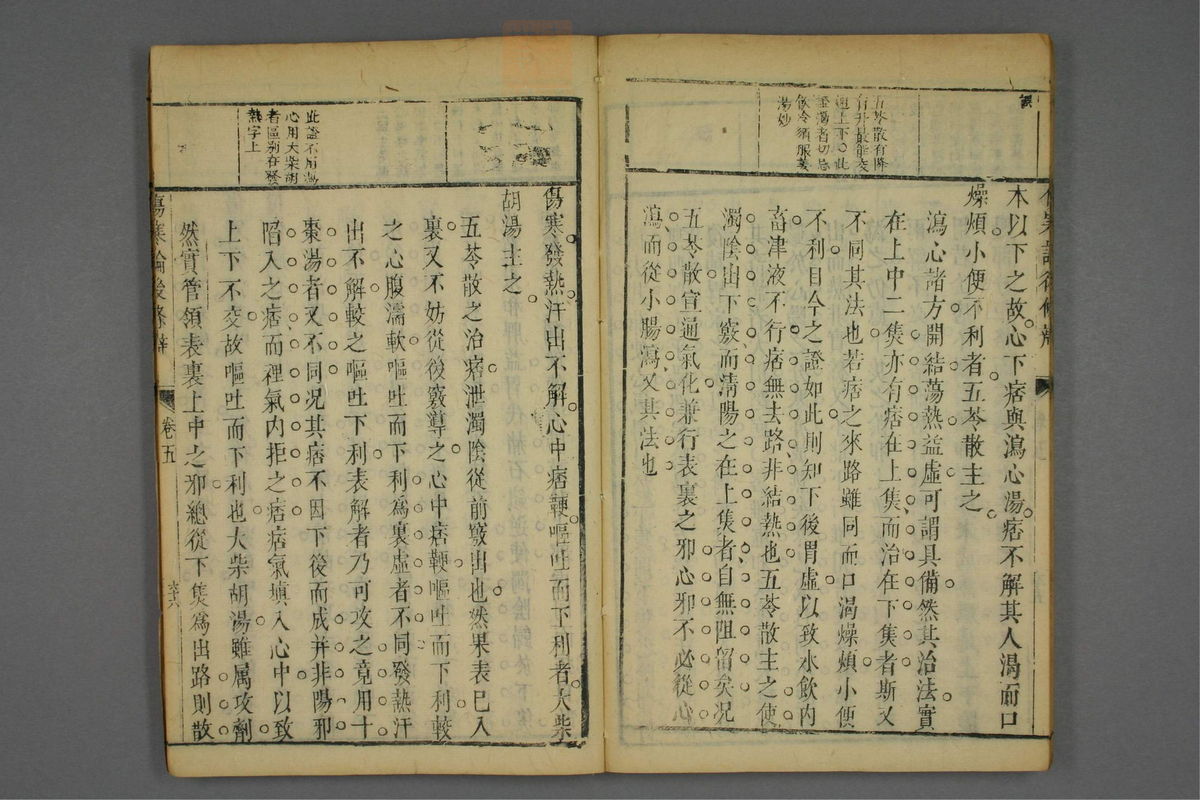 誤
五苓散有降
有升最能交
通上下〇此
證渴者切忌
飲冷須服姜
湯妙
本以下之故心下痞與瀉心湯痞不解其人渴而口
燥煩小便不利者五苓散主之
瀉心諸方開結蕩熱益虛可謂具備然其治法實
在上中二焦亦有痞在上焦而治在下焦者斯又
不同其法也若痞之來路雖同而口渴燥煩小便
不利目今之證如此則知下後胃虛以致水飲內
畜津液不行痞無去路非結熱也五苓散主之使
濁陰出下竅而清陽之在上焦者自無阻留矣況
五苓散宣通氣化兼行表裏之邪心邪不必從心
瀉而從小腸瀉又其法也
此證不用瀉
心用大柴胡
者區別在發
熱字上
傷寒發熱汗出不解心中痞鞕嘔吐而下利者大柴
胡湯主之
五苓散之治痞泄濁陰從前竅出也然果表已入
裏又不妨從後竅導之心中痞鞕嘔吐而下利較
之心腹濡軟嘔吐而下利為裏虛者不同發熱汗
出不解較之嘔吐下利表解者乃可攻之竟用十
棗湯者又不同況其痞不因下後而成并非陽邪
陷入之痞而裡氣內拒之痞痞氣填入心中以致
上下不交故嘔吐而下利也大柴胡湯雖属攻劑
然實管領表裏上中之邪總從下焦為出路則散
傷寒論後條辨
卷五
六六